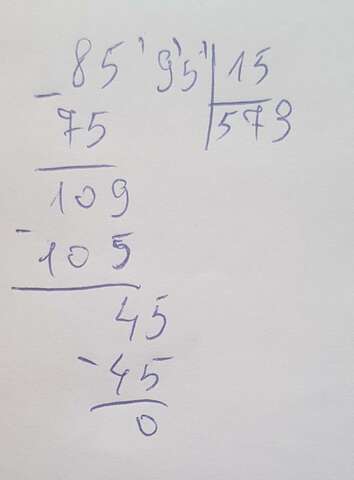 85'9'5' 15
- 75 573
109
- 105
45
- 45
0